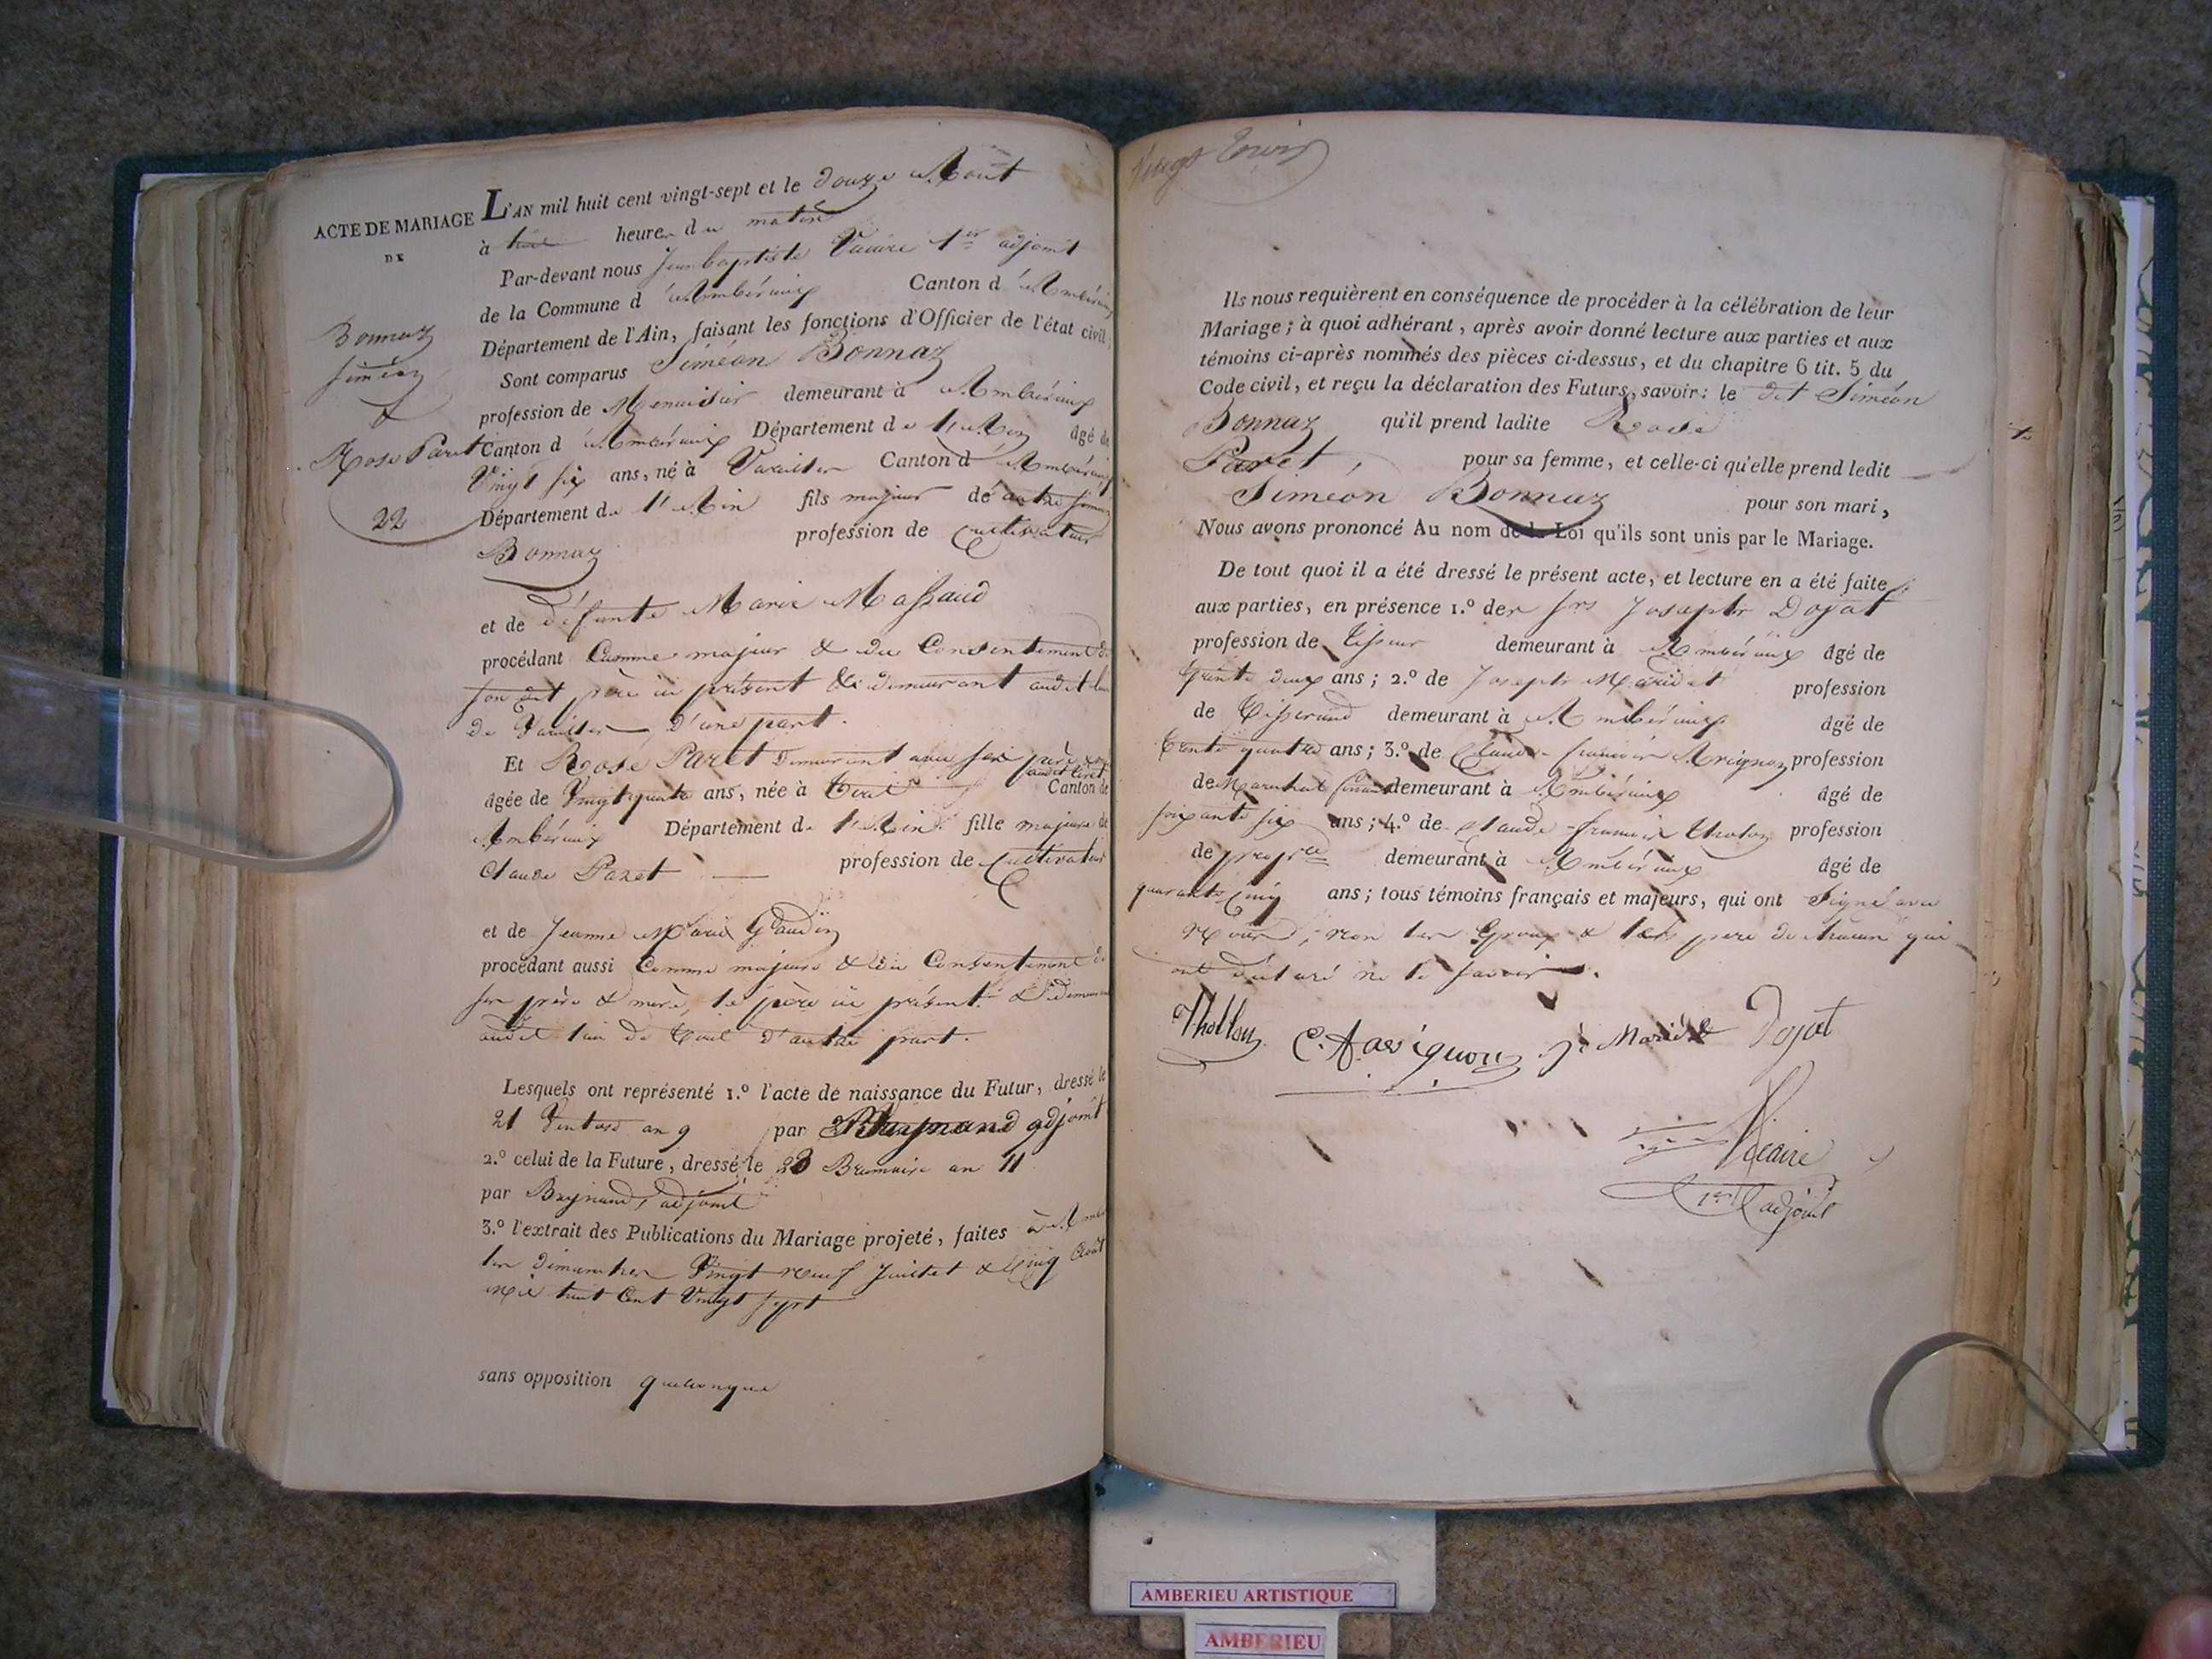 ACTE DE MARIAGE
DE
Bonnaz
Siméon
&
Rose Paret
22
L'AN mil huit cent vingt-sept et le douze Aout
à heures du matin
Par-devant nous Jean baptiste Vicaire 1er adjoint
de la Commune d'Ambérieux Canton d'Ambérieux
Département de l'Ain, faisant les fonctions d'Officier de l'état civil,
Sont comparus Siméon Bonnaz
profession de Menuisier demeurant à Ambérieux
Canton d'Ambérieux Département de l'Ain âgé de
Vingt six ans, né à Vareilles Canton d'Ambérieux
Département de l'Ain fils majeur de autre Siméon
Bonnaz profession de Cultivateur
et de défunte Marie Massaud
procédant Comme majeur & du Consentement de
son dit père ici présent & demeurant audit lieu
de Vareilles, d'une part.
Et Rose Paret demeurant avec ses père &
audit Tiret
âgée de Vingt quatre ans, née à Tiret Canton de
Ambérieux Département de l'Ain fille majeure de
Claude Paret profession de Cultivateur
et de Jeanne Marie Gaudin
procédant aussi Comme majeure & du Consentement de
ses père & mère, le père ici présent & demeurant
audit lieu de Tiret d'autre part.
Lesquels ont représenté 1.° l'acte de naissance du Futur, dressé le
21 Ventose an 9 par adjoint
2.° celui de la Future, dressé le 28 Brumaire an 11
par adjoint
3.° l'extrait des Publications du Mariage projeté, faites à
les dimanches Vingt neuf Juillet & Cinq Août
mil huit Cent Vingt sept
sans opposition quelconque
Vingt trois
Ils nous requièrent en conséquence de procéder à la célébration de leur
Mariage; à quoi adhérant, après avoir donné lecture aux parties et aux
témoins ci-après nommés des pièces ci-dessus, et du chapitre 6 tit. 5 du
Code civil, et reçu la déclaration des Futurs, savoir: le dit Siméon
Bonnaz qu'il prend ladite Rose
Paret, pour sa femme, et celle-ci qu'elle prend ledit
Siméon Bonnaz pour son mari,
Nous avons prononcé Au nom de la Loi qu'ils sont unis par le Mariage.
De tout quoi il a été dressé le présent acte, et lecture en a été faite
aux parties, en présence 1.° des Srs Joseph Dojat
profession de Tisseur demeurant à Ambérieux âgé de
trente deux ans; 2.° de Joseph Maridet profession
de Tisserand demeurant à Ambérieux âgé de
trente quatre ans; 3.° de Claude-françois Avignon profession
de Marechal demeurant à Ambérieux âgé de
soixante six ans; 4.° de Claude-françois Tholon profession
de propre demeurant à Ambérieux âgé de
quarante Cinq ans; tous témoins français et majeurs, qui ont Signé avec
Nous, non les Epoux & les père de chacun qui
ont déclaré ne le savoir.
Thollon C. Aavignon Je Maridet Dojat
Vicaire
1er adjoint
AMBERIEU ARTISTIQUE
AMBERIEU